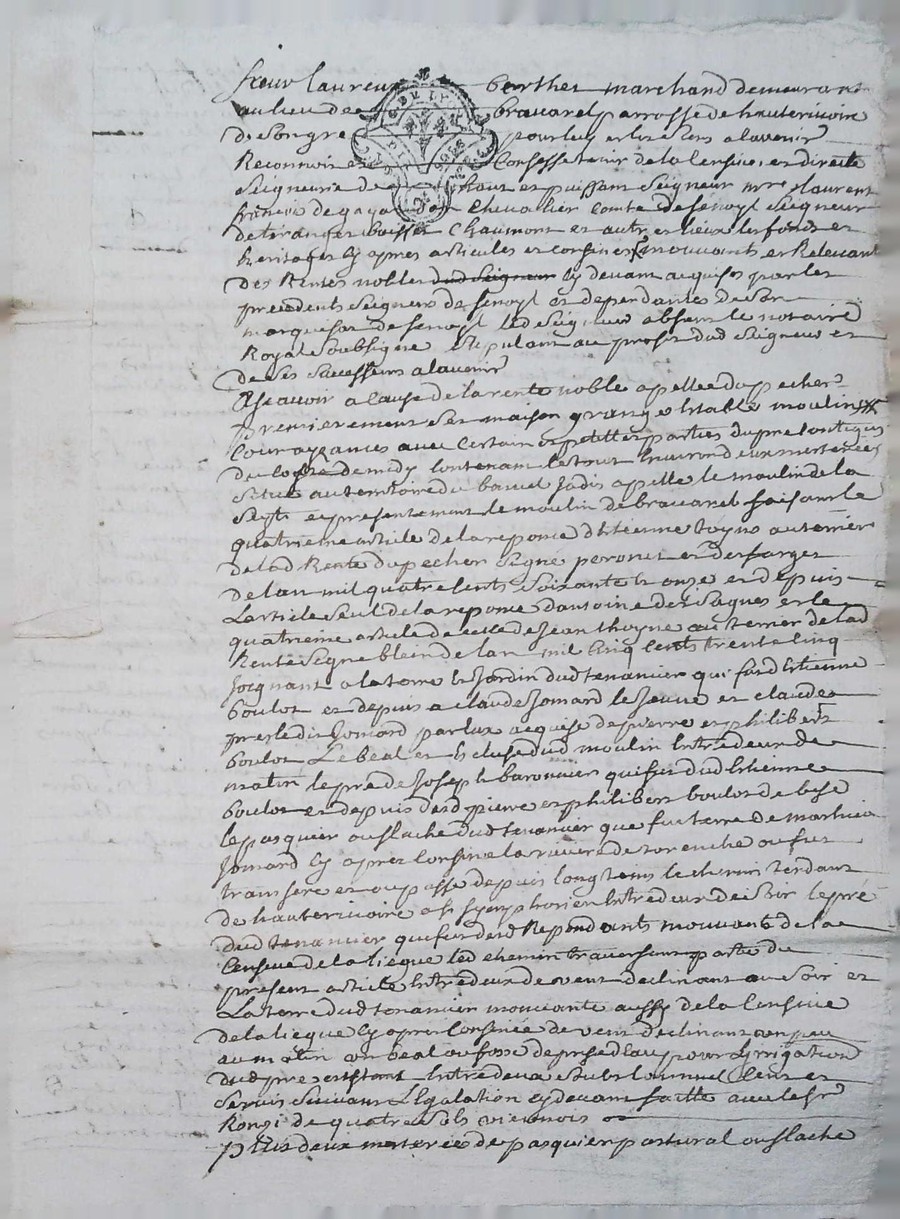 sieur laurent berther marchand demeurant
au lieu de bravarel parroisse de hauterivoire
de son gre pour luy et les siens a lavenir
Reconnoit et Confesse tenir de la Censive et directe
Seigneurie de haut et puissant Seigneur mre laurent
francois de gaya Chevallier Comte de fenoyl Seigneur
de Chaumont et autres lieux les fonds et
heritages cy apres articulés et confinés mouvants et Relevant
des Rentes nobles dud Seigneur cy devant acquises par les
precedents Seigneurs de fenoyl et dependantes de son
marquisat de fenoyl led Seigneur absent le notaire
Royal soubsigné stipulant au profit dud Seigneur et
de ses successeurs a lavenir
A Scavoir a cause de la rente noble appellee du pecher
premierement ses maison grange estable moulin
Courayances avec certaines petittes parties du pre contigus
du cotte de midy contenant le tout environ deux meterees
Situé au territoire de baruel jadis appelle le moulin de la
et presentement le moulin de bravarel faisant le
quatrieme article de la reponce dEtienne toyno au terrier
de lad Rente du pecher Signé peronet et desfarges
de lan mil quatre cents soixante et onze et depuis
Larticle seul de la reponce dantoine des et le
quatrieme article de celle de Jean thoyne au terrier de lad
Rente Signé blein de lan mil cinq cents trente cinq
Joignant a la terre et Jardin dud tenancier qui fut dEtienne
boulot et depuis a claude Jomard le Jeune et claude
Jomard par eux acquise de pierre et philibert
boulot Le beal et Ecluse dud moulin entre deux de
matin le pre de Joseph baronnier qui fut dud Etienne
boulot et depuis desd pierre et philibert boulot de bise
le pasquier ou flache dud tenancier que fut terre de mathieu
Jomard cy apres confiné la riviere de torenche ou fut
et ou passe depuis longtems le chemin tendant
de hauterivoire a St Symphorien entre deux de Soir le pré
dud tenancier qui fut desd Repondants mouvant de la
Censive de la liegue led chemin traversant partie du
present article entre deux de vent declinant au Soir et
La terre dud tenancier mouvante aussy de la Censive
de la liegue cy apres confinée de vent declinant un peu
au matin un beal ou fosse de prise deau pour Lirrigation
dud pre existant entre deux Sous lannuel Cens et
Servis Suivant Legalation cy devant faitte avec le Sr
Ronzi de quatre sols viennois
Plus deux meterées de pasquier pastural ou flache